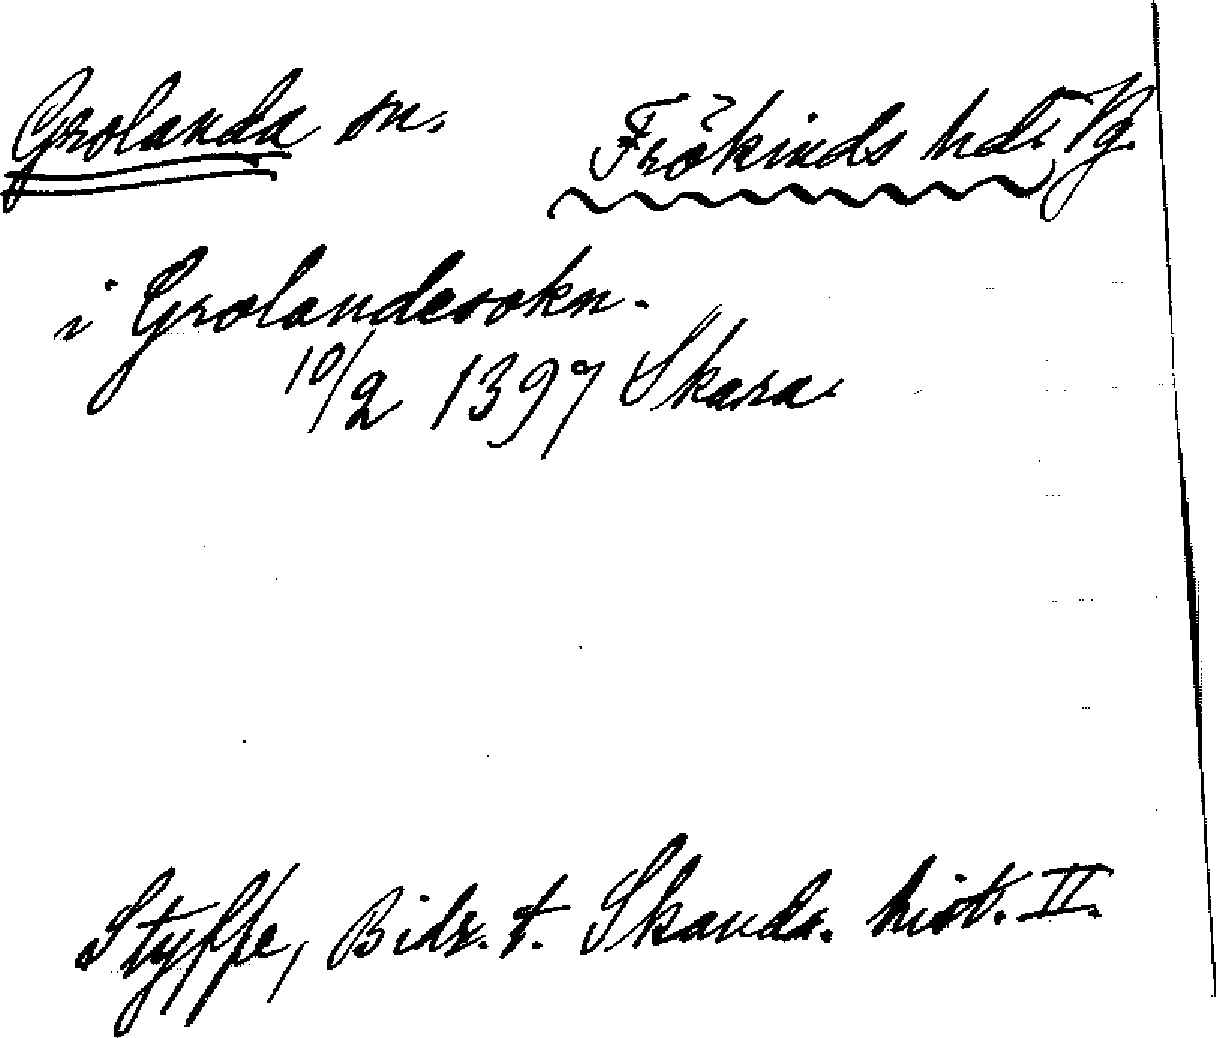 Grolanda sn. Frökinds hd. Vg.
i Grolandesokn.
10/2 1397 Skara.
Styffe, Bidr. t. Skand. hist. II.